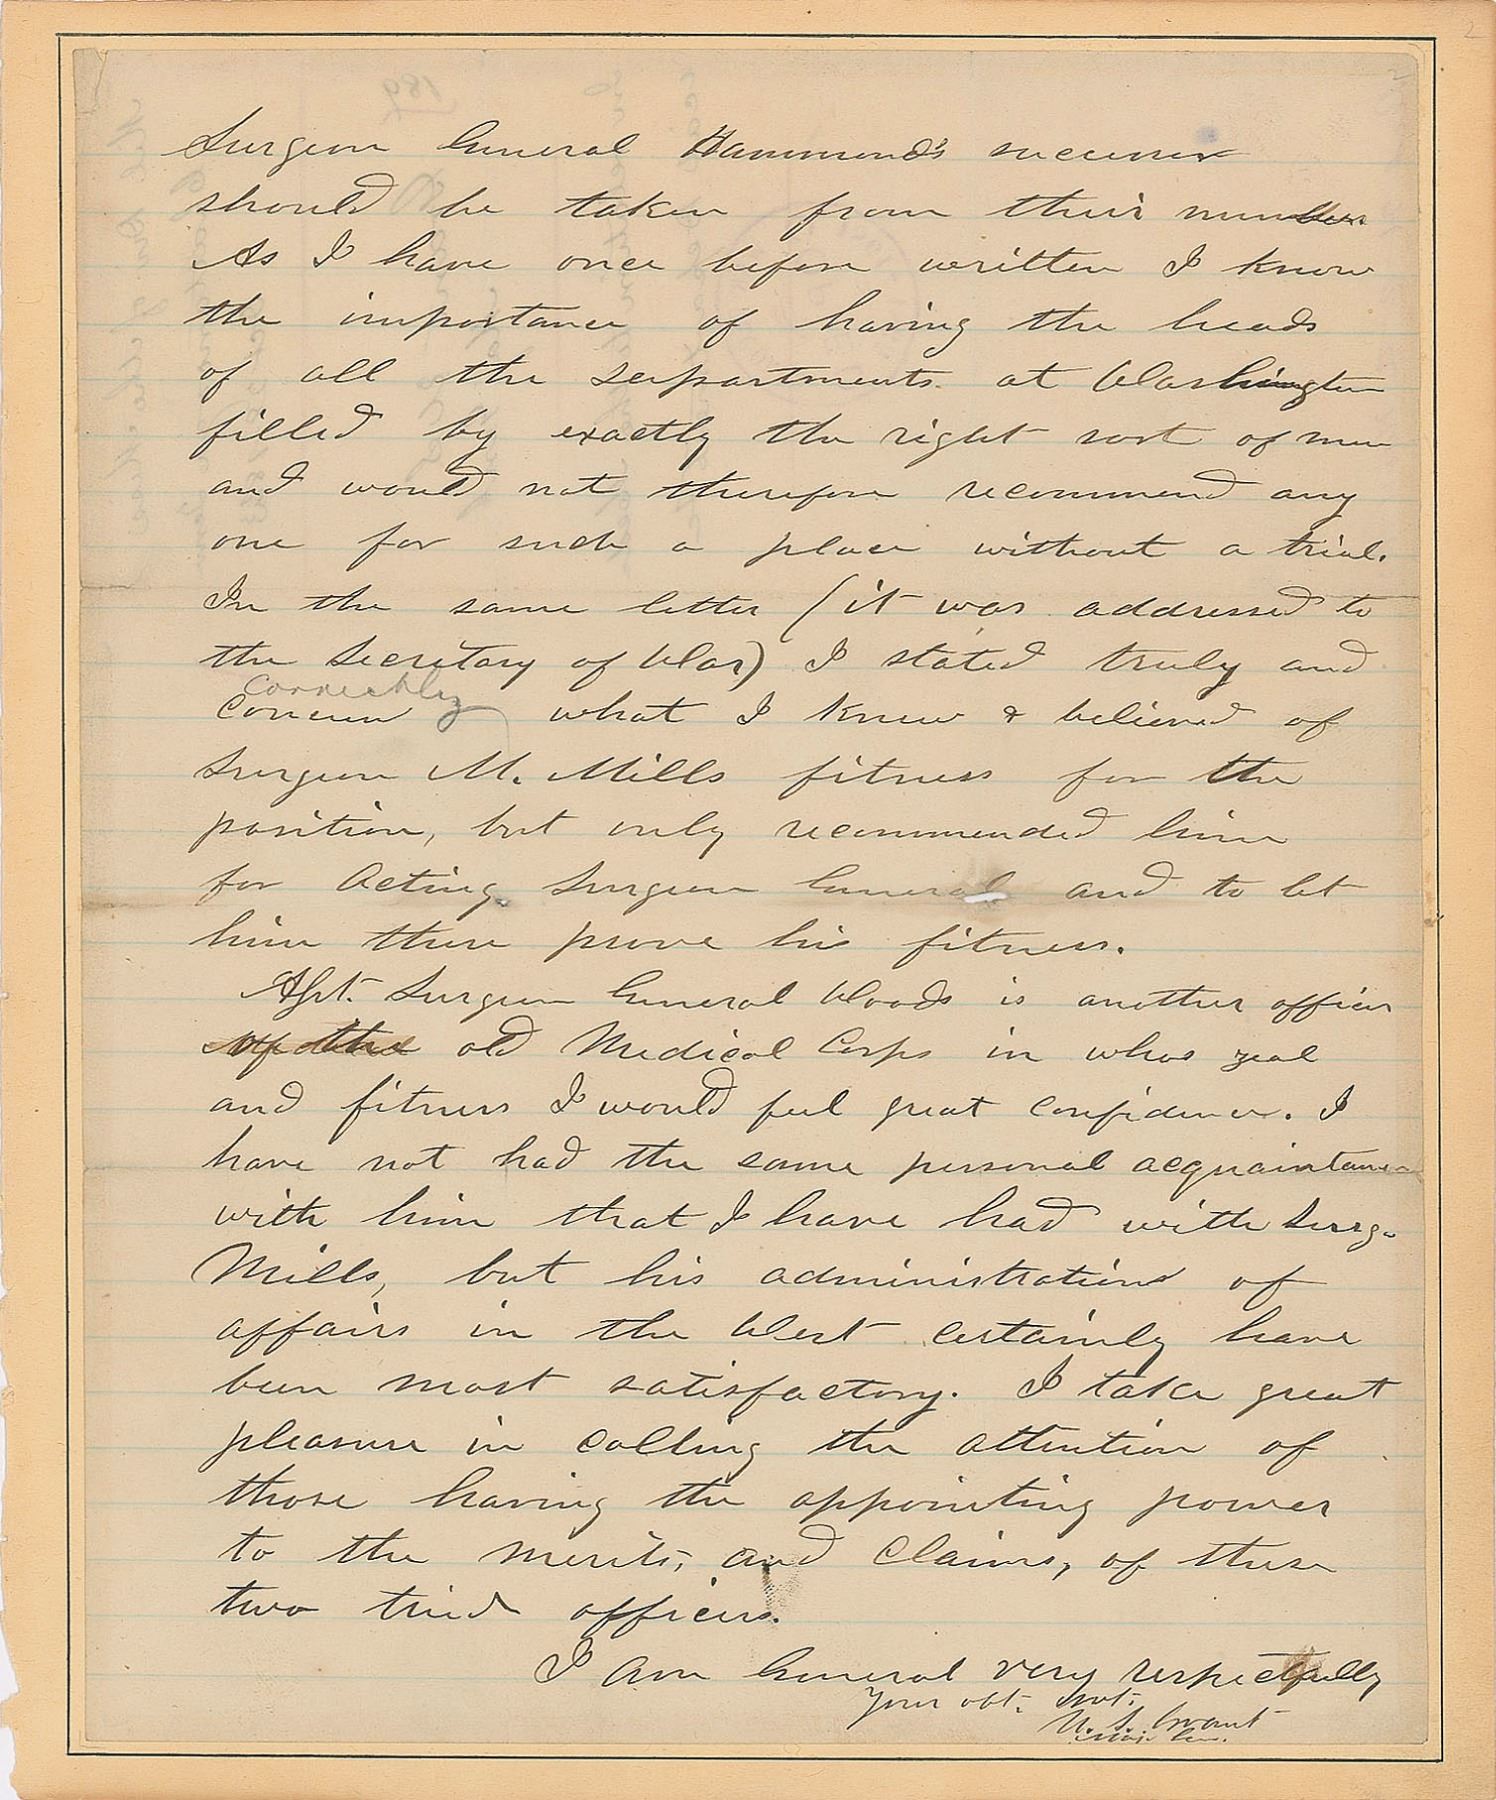 Surgeon General Hammond's successor
should be taken from their number.
As I have once before written I know
the importance of having the heads
of all the departments at Washington
filled by exactly the right sort of men
and would not therefore recommend any
one for such a place without a trial.
In the same letter (it was addressed to
the Secretary of War) I stated truly and
correctly
what I knew & believed of
Surgeon M. Mills fitness for the
position, but only recommended him
for Acting Surgeon General and to let
him there prove his fitness.
Asst. Surgeon General Woods is another officer
of the old Medical Corps in whos zeal
and fitness I would feel great confidence. I
have not had the same personal acquaintance
with him that I have had with Surg.
Mills, but his administration of
affairs in the West certainly have
been most satisfactory. I take great
pleasure in calling the attention of
those having the appointing power
to the merits, and claims, of these
two tried officers.
I am General very respectfully
your obt. svt.
U. S. Grant
Maj. Gen.
189
2
2